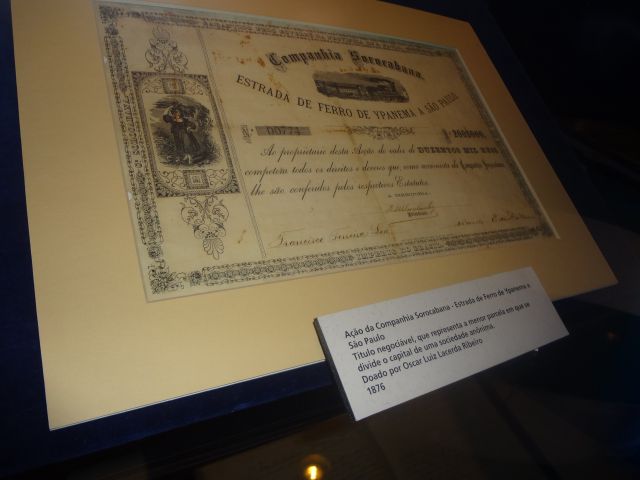 Companhia Sorocabana,
ESTRADA DE FERRO DE YPANEMA A SÃO PAULO
Ao proprietario desta Acção do valor de DUZENTOS MIL REIS
competem todos os direitos e deveres que, como accionista da Companhia Sorocabana
lhe são conferidos pelos respectivos Estatutos.
Francisco
IMPERIO DO BRAZIL
Ação da Companhia Sorocabana - Estrada de Ferro de Ypanema a
São Paulo
Título negociável, que representa a menor parcela em que se
divide o capital de uma sociedade anônima.
Doado por Oscar Luiz Lacerda Ribeiro
1876